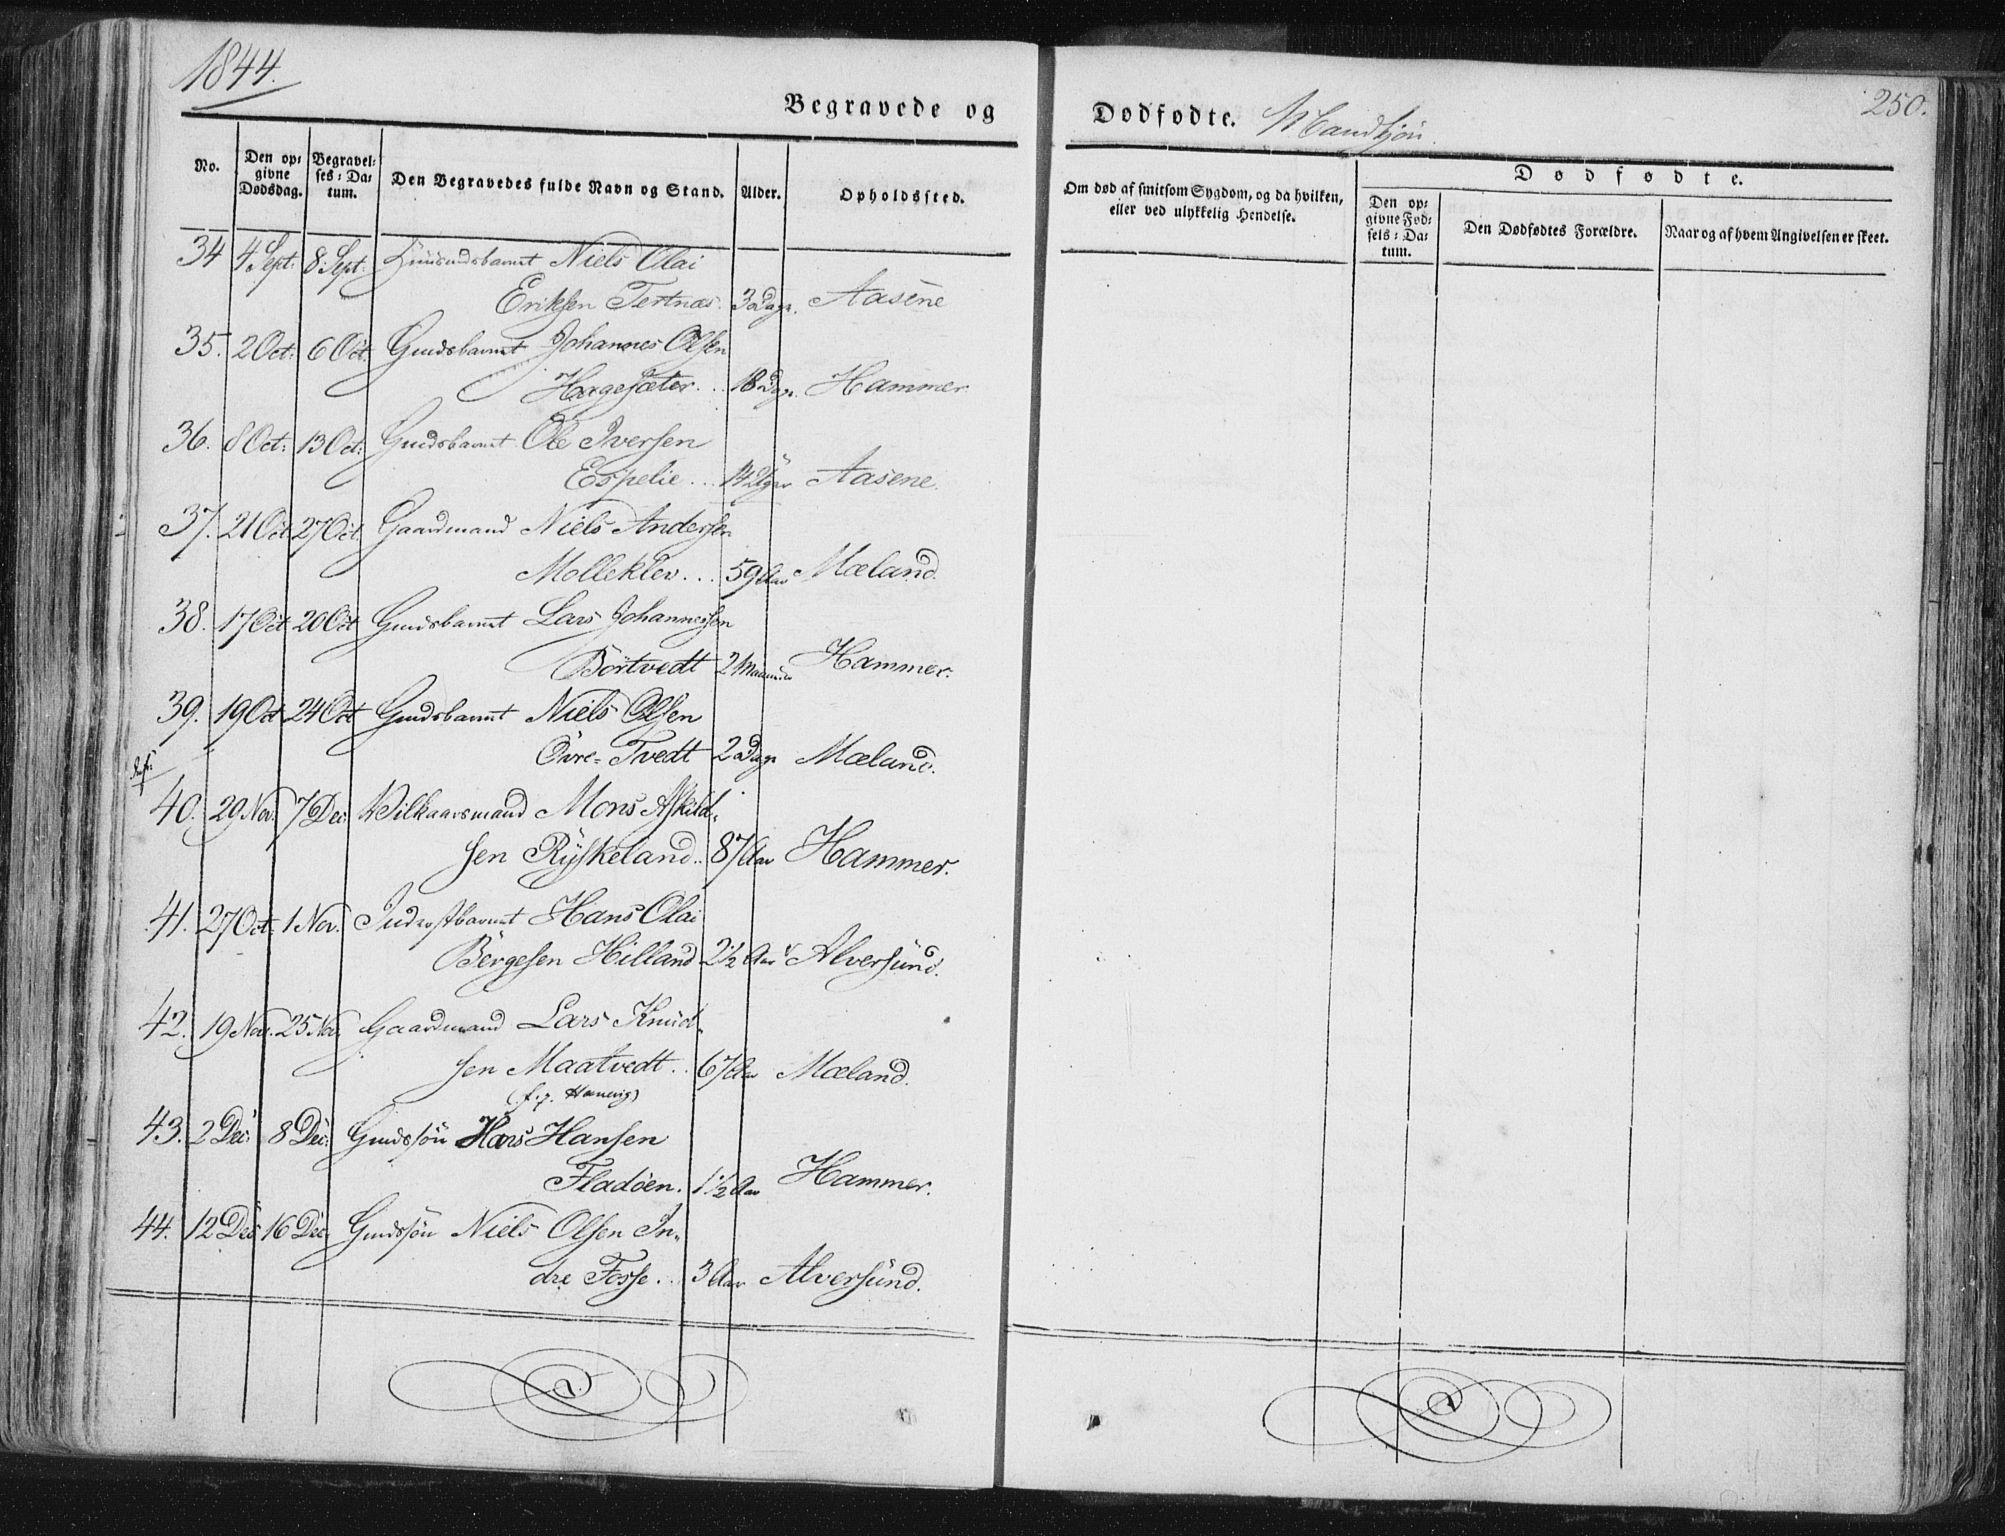 1844.
Begravede og
Dødfødte. Mandkjön.
250.
No.
Den op-
givne
Dødsdag.
Begravel-
ses-Da-
tum.
Den Begravedes fulde Navn og Stand.
Alder.
Opholdssted.
Om død af smitsom Sygdom, og da hvilken,
eller ved ulykkelig Hendelse.
Dødfødte.
Den op-
givne Fød-
sels-Da-
tum.
Den Dødfødtes Forældre.
Naar og af hvem Angivelsen er skeet.
34 4 Sept: 8 Sept: Niels Olai
Eriksen Tertnæs. Aasene
35. 2 Oct: 6 Oct: Gmdsbarnet Johannes Olsen
Hagesæter. .. 18 Dage. Hammer
36. 8 Oct: 13 Oct: Gmdsbarnet Ole Iversen
Espelie ... Aasene.
37. 21 Oct 27 Oct. Gaardmand Niels Andersen
Molleklev. .. 59 Aar Mæland.
38. 17 Oct 20 Oct Gmdsbarnet Lars Johannessen
Börtvedt 2 Maaneder Hammer.
39. 19 Oct 24 Oct Gmdsbarnet Niels Olsen
Övre-Tvedt 2 Dage Mæland.
40. 29 Nov. 7 Dec. Vilkaarsmand Mons Askild-
sen Ryskeland.. 87 Aar Hammer.
41. 27 Oct. 1 Nov. Inderstbarnet Hans Olai
Börgesen Hilland 2 1/2 Aar Alversund.
42. 19 Nov. 25 Nov. Gaardmand Lars Knud-
sen Maatvedt .. 67 Aar Mæland.
43. 2 Dec: 8 Dec: Gmdssön Hans Hansen
Fladöen. 1 1/2 Aar Hammer.
44. 12 Dec 16 Dec. Gmdssön Niels Olsen In-
dre Fosse. .. 3 Aar Alversund.